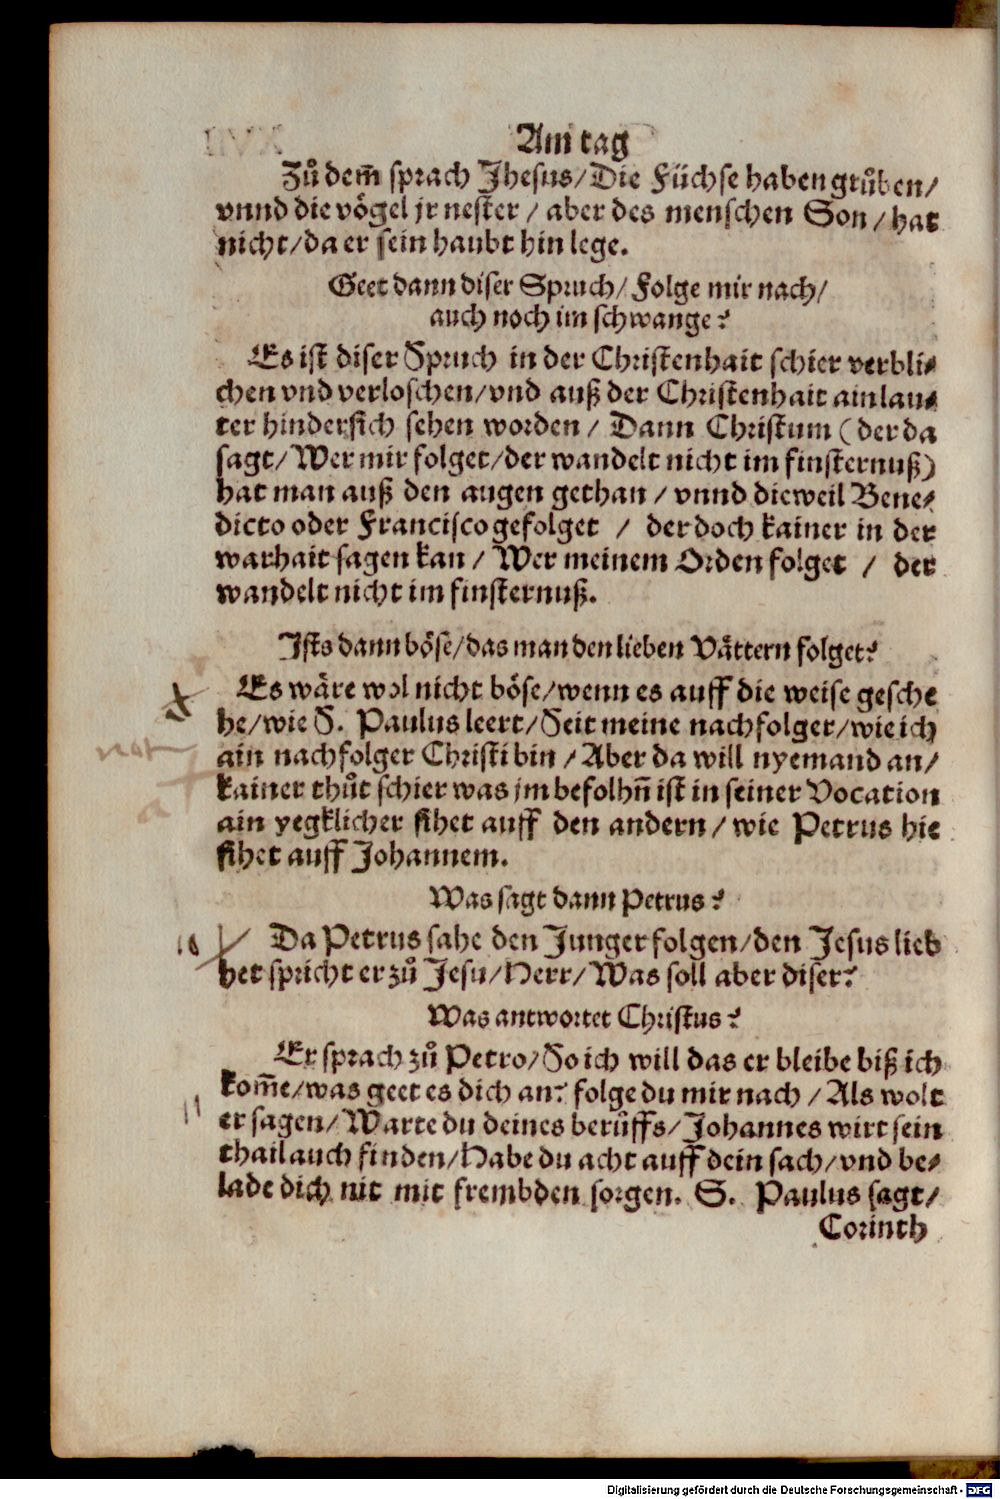 Am tag
Zů dem̄ sprach Jhesus/Die Füchse haben grůben/
vnnd die vögel jr nester / aber des menschen Son / hat
nicht/da er sein haubt hin lege.
Geet dann diser Spruch/ Folge mir nach/
auch noch im schwange?
Es ist diser Spruch in der Christenhait schier verbli⸗
chen vnd verloschen/vnd auß der Christenhait ain lau⸗
ter hindersich sehen worden / Dann Christum (der da
sagt/ Wer mir folget/der wandelt nicht im finsternuß)
hat man auß den augen gethan / vnnd dieweil Bene⸗
dicto oder Francisco gefolget / der doch kainer in der
warhait sagen kan / Wer meinem Orden folget / der
wandelt nicht im finsternuß.
Ists dann böse/das man den lieben Vättern folget?
Es wäre wol nicht böse/wenn es auff die weise gesche
he/wie S. Paulus leert/Seit meine nachfolger/wie ich
ain nachfolger Christi bin / Aber da will nyemand an/
kainer thůt schier was jm befolhn̄ ist in seiner Vocation
ain yegklicher sihet auff den andern / wie Petrus hie
sihet auff Johannem.
Was sagt dann Petrus?
Da Petrus sahe den Junger folgen/den Jesus lieb
het spricht er zů Jesu/Herr/Was soll aber diser?
Was antwortet Christus?
Er sprach zů Petro/So ich will das er bleibe biß ich
kom̄e/was geet es dich an? folge du mir nach / Als wolt
er sagen/ Warte du deines berůffs/Johannes wirt sein
thail auch finden/Habe du acht auff dein sach/vnd be⸗
lade dich nit mit frembden sorgen. S. Paulus sagt/
Corinth
Digitalisierung gefördert durch die Deutsche Forschungsgemeinschaft - DFG